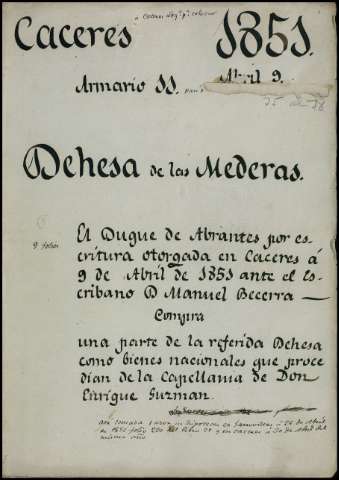 Caceres 1851.
Abril 9.
Armario 11.
Dehesa de las Mederas.
9 folios
El Duque de Abrantes por es-
critura otorgada en Caceres á
9 de Abril de 1851 ante el Es-
cribano D Manuel Becerra
Compra
una parte de la referida Dehesa
como bienes nacionales que proce
dian de la Capellania de Don
Enrique Guzman.
de Abril
mismo año